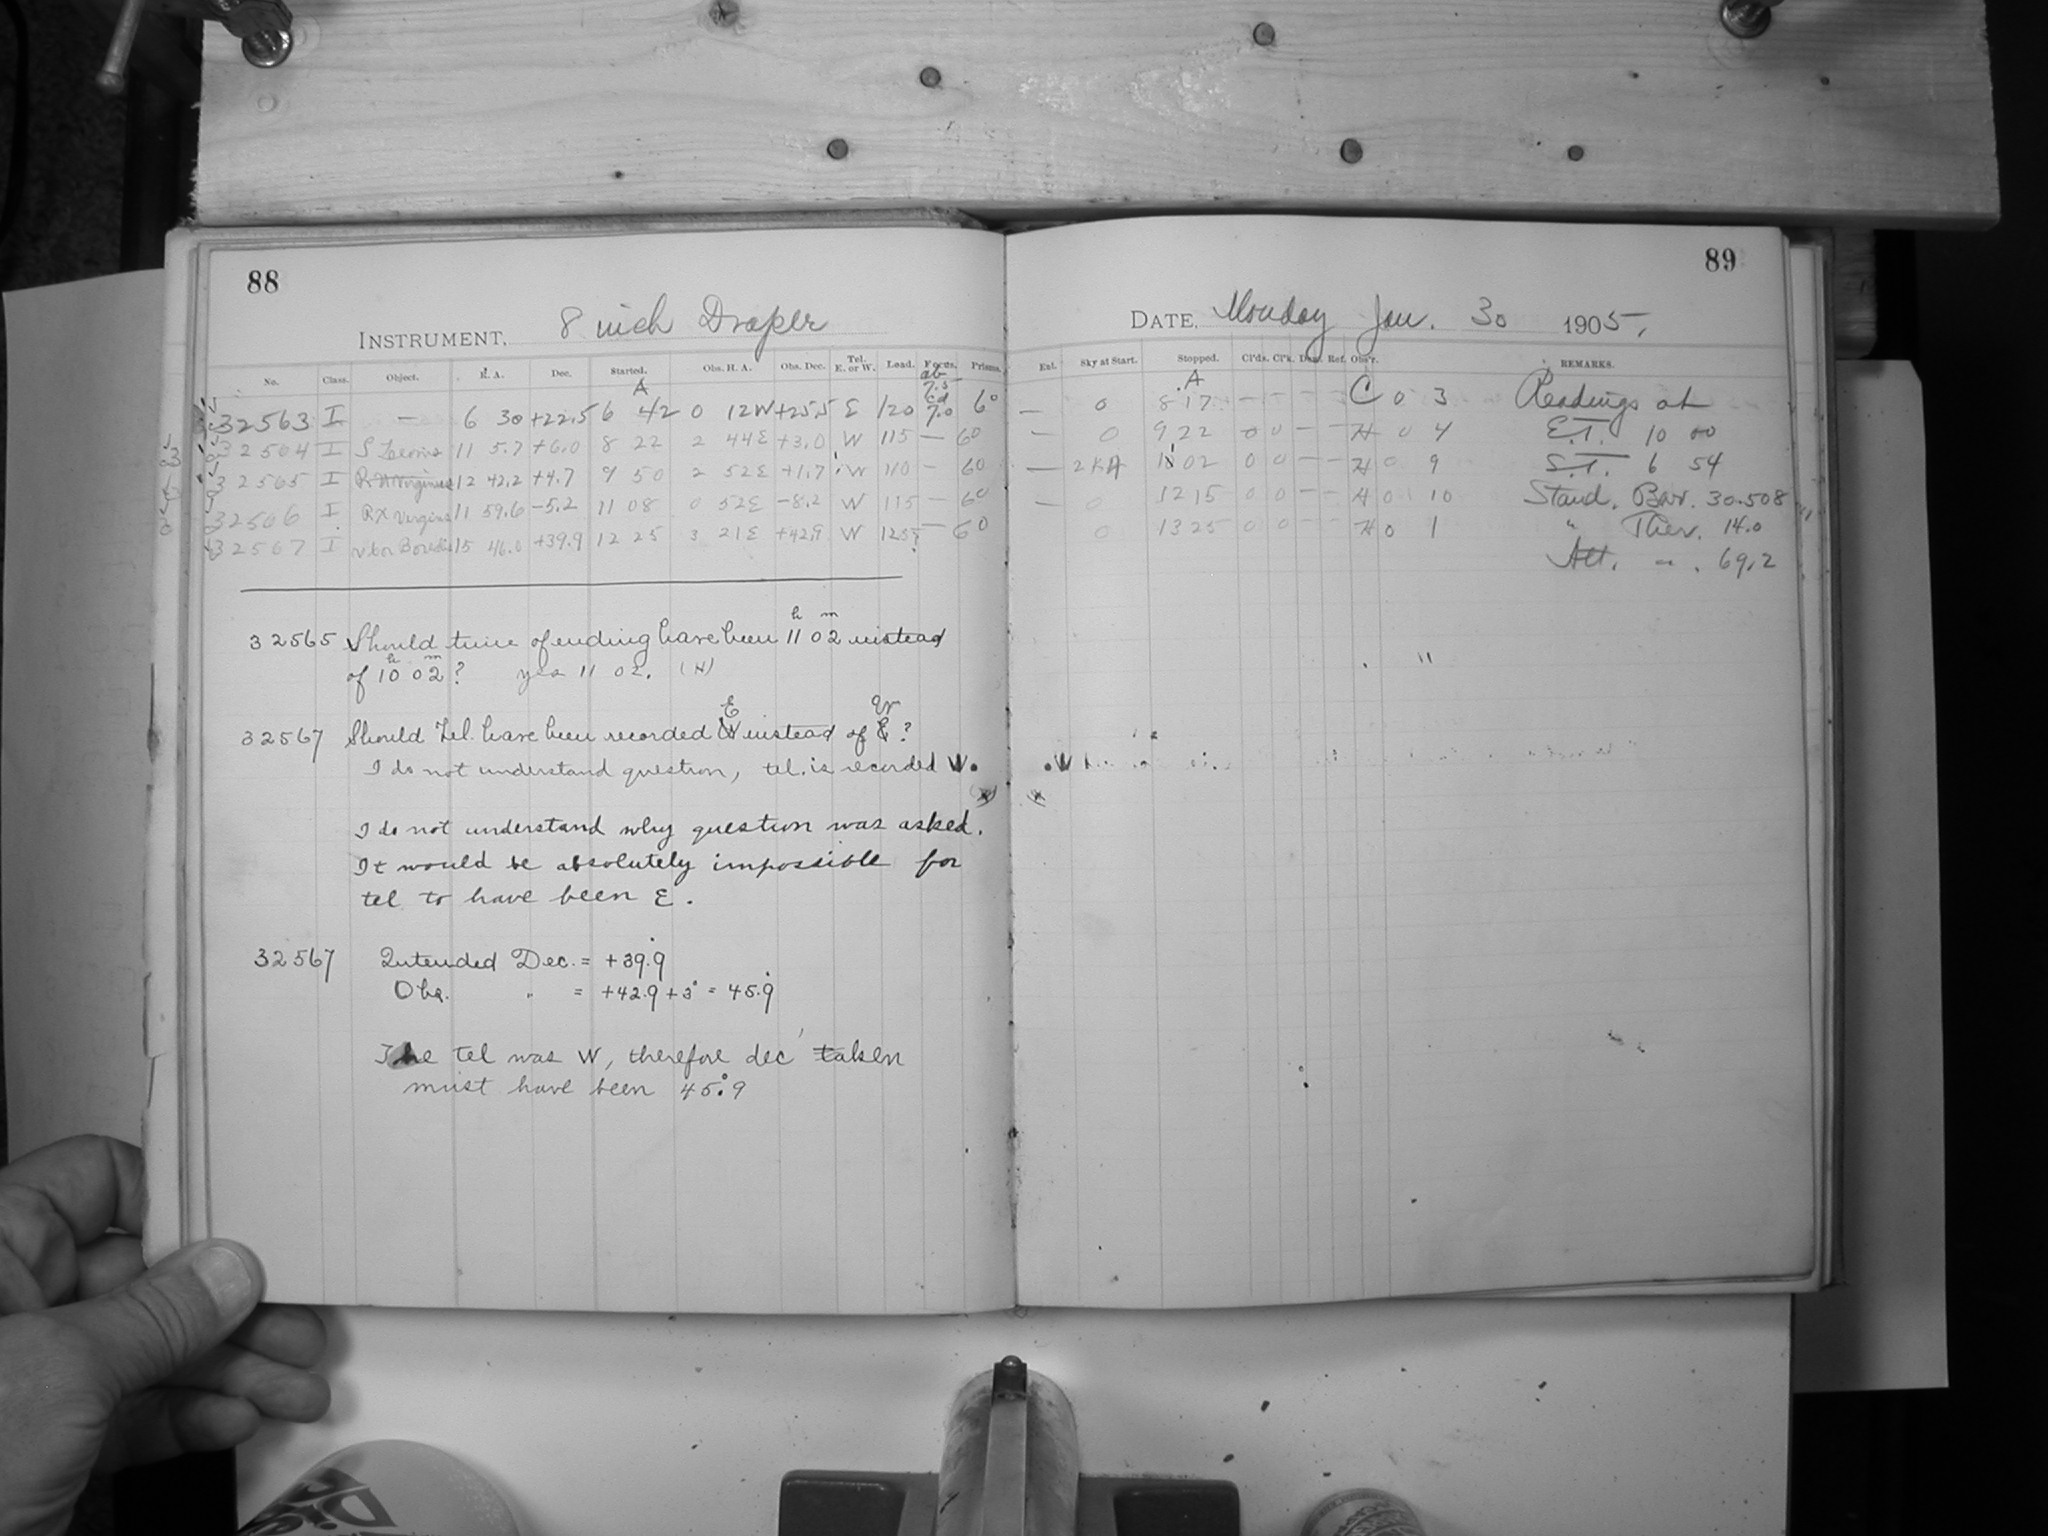 88
89
INSTRUMENT, 8 inch Draper
DATE, Monday Jan. 30 1905,
No. Class. Object. R. A. Dec. Started. Obs. H. A. Obs. Dec. Tel. E. or W. Load. Focus. Prisms.
Ext. Sky at Start. Stopped. Cl'ds. Cl'k. Dew. Ref. Obs'r. REMARKS.
32563 I — 6 30 +22.5 6 42 0 12W +25.5 E 120 ab 7.5 cd 7.0 6°
— 0 8 17 — — — — C 0 3 Readings at
32564 I S Leonis 11 5.7 +6.0 8 22 2 44E +3.0 W 115 — 6°
— 0 9 22 0 0 — — H 0 4 E.T. 10 00
32565 I R Virginis 12 42.2 +4.7 9 50 2 52E +1.7 W 110 — 6°
— 2KA 11 02 0 0 — — H 0 9 S.T. 6 54
32566 I RX Virginis 11 59.6 -5.2 11 08 0 52E -8.2 W 115 — 6°
— 0 12 15 0 0 — — H 0 10 Stand. Bar. 30.508
32567 I v Cor Borealis 15 46.0 +39.9 12 25 3 21E +42.9 W 125? — 6°
0 13 25 0 0 — — H 0 1 " Ther. 14.0
Att. " . 69.2
32565 Should time of ending have been 11h 02m instead
of 10h 02m? yes 11 02. (H)
32567 Should Tel. have been recorded E instead of W?
I do not understand question, tel. is recorded W.
I do not understand why question was asked.
It would be absolutely impossible for
tel to have been E.
32567 Intended Dec. = +39.9
Obs. " = +42.9 + 3° = 45.9
The tel was W, therefore dec taken
must have been 45.9